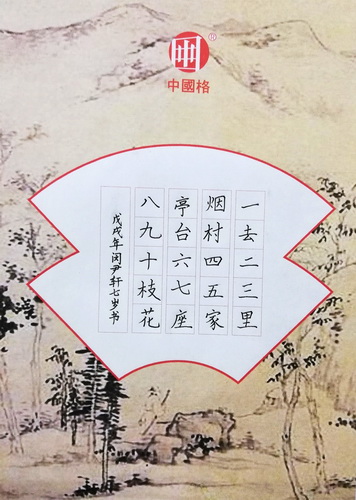 中國格
一去二三里
烟村四五家
亭台六七座
八九十枝花
戊戌年闵尹轩七岁书